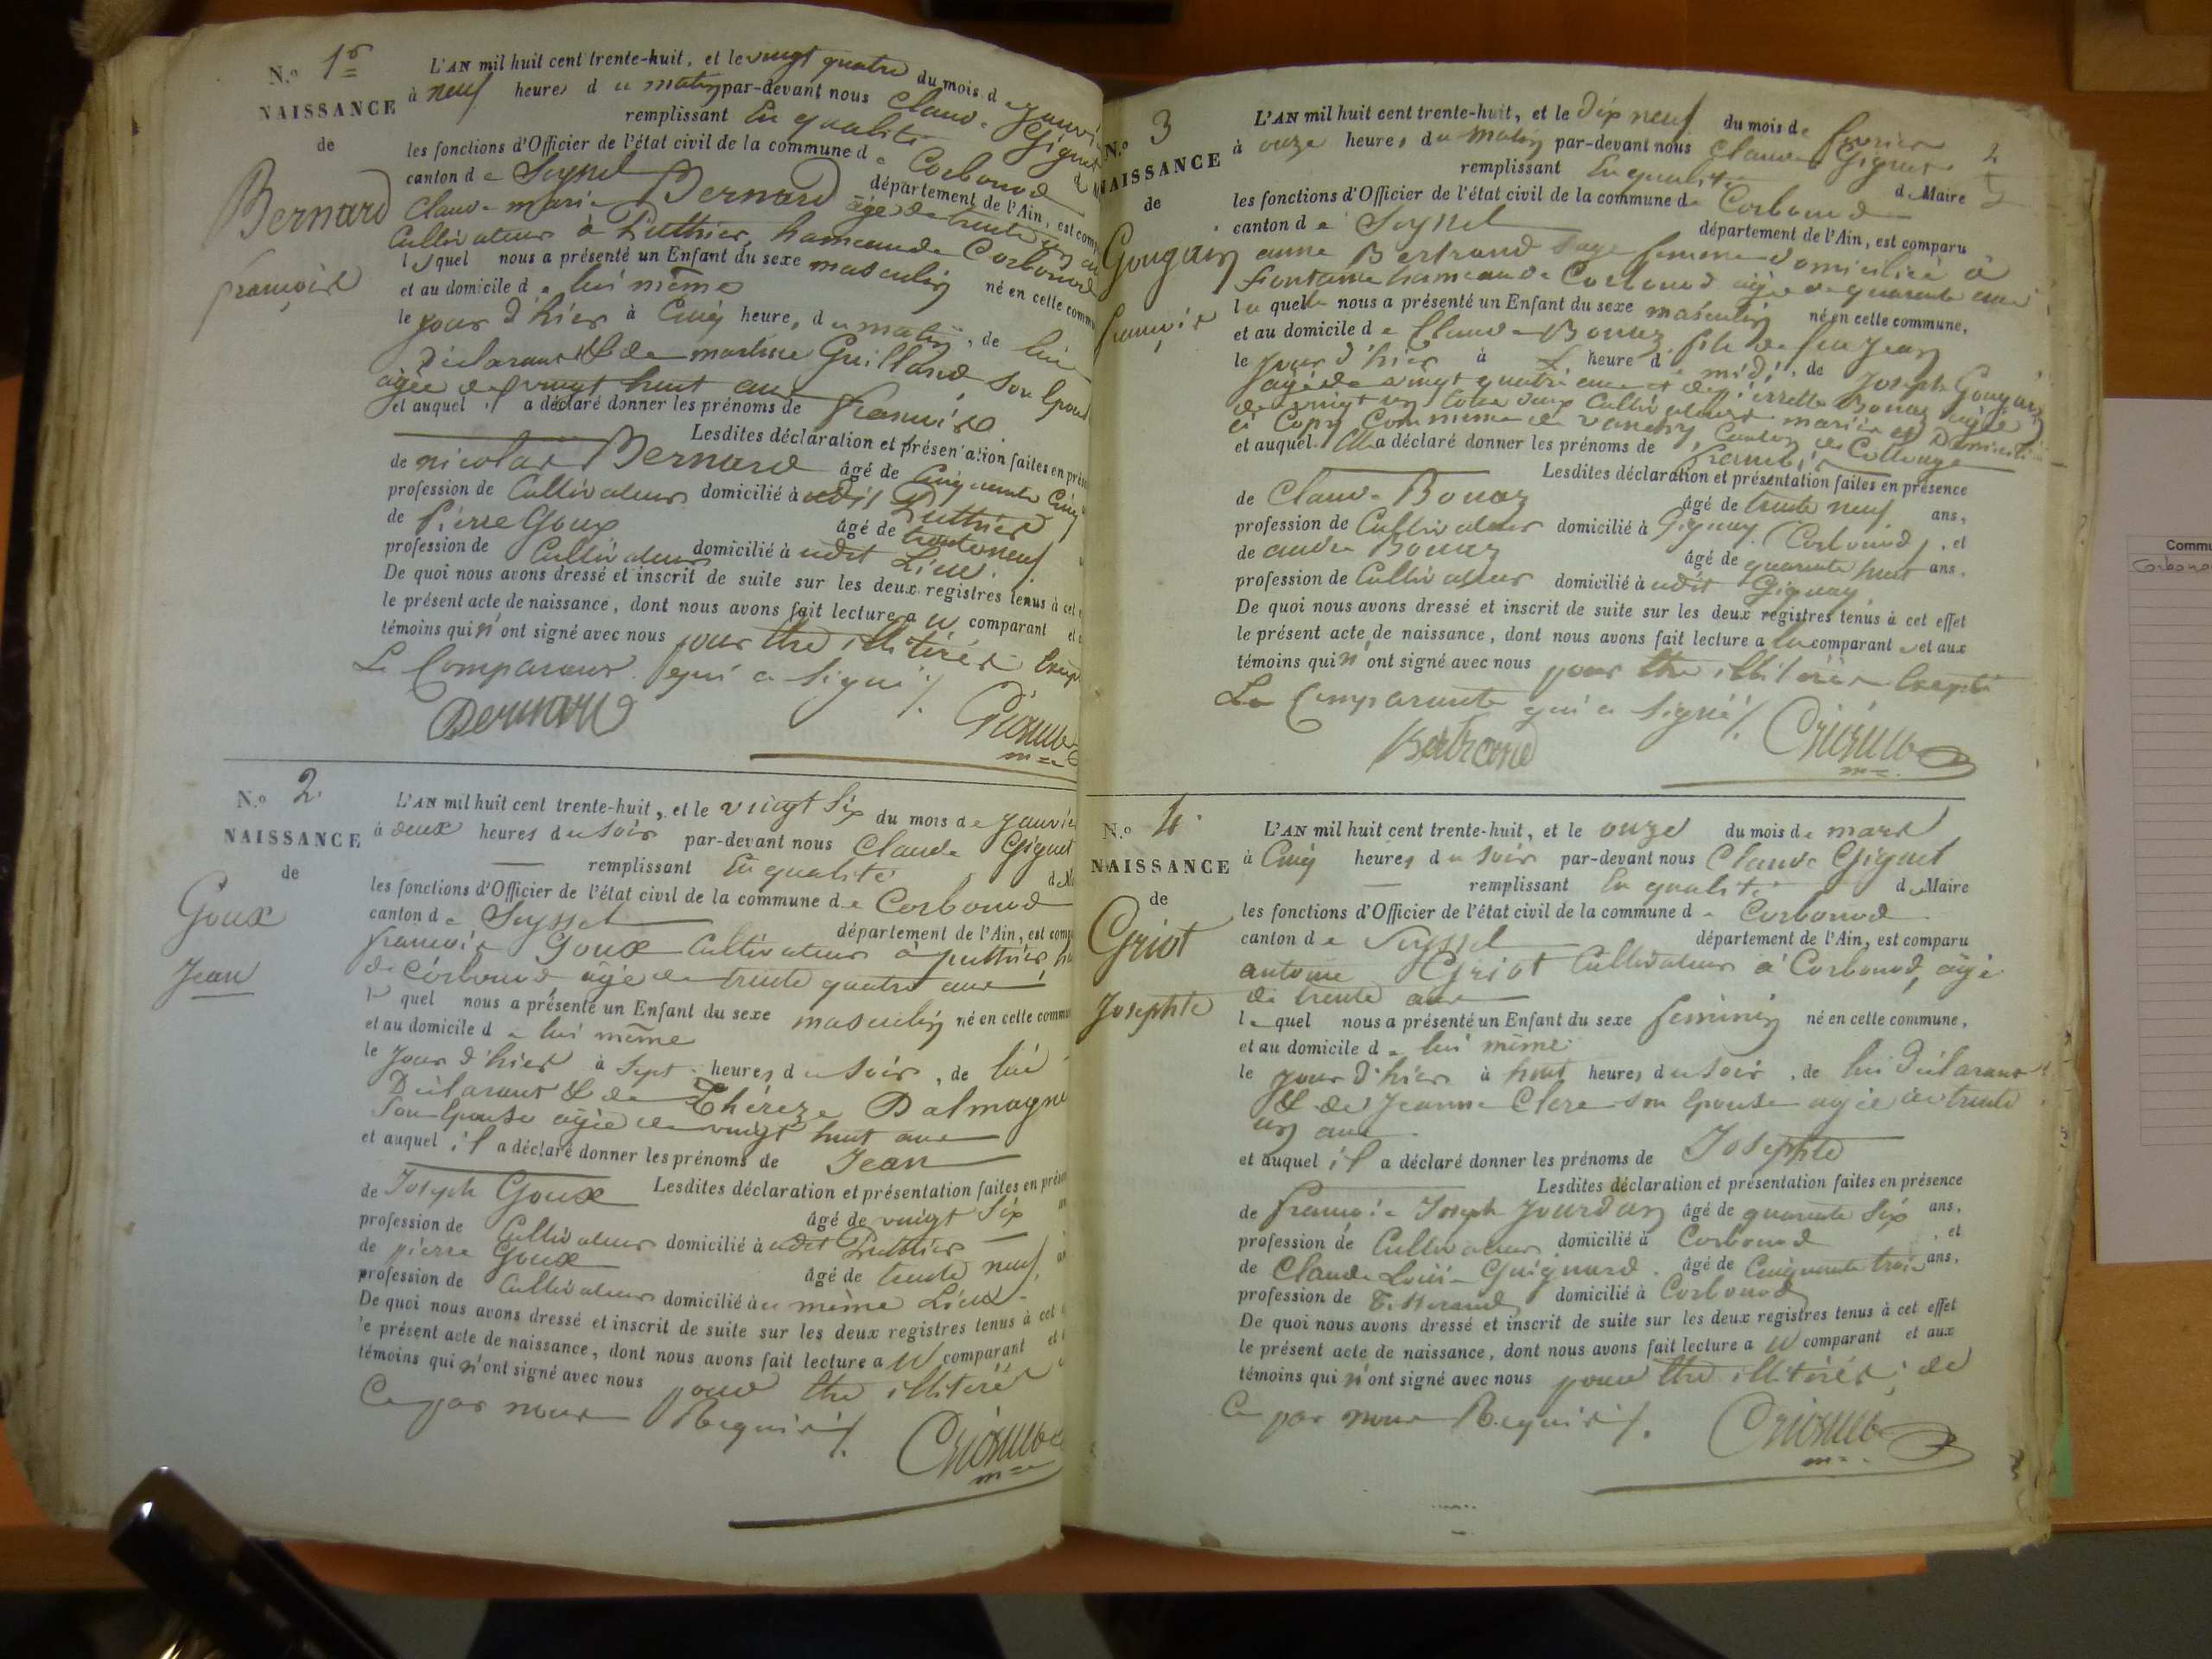 N.o 1er
NAISSANCE
de
Bernard
françois
L'AN mil huit cent trente-huit, et le vingt quatre du mois de janvi
à neuf heures du matin par-devant nous Claude Gignet
remplissant En qualité d
les fonctions d'Officier de l'état civil de la commune de Corbonod
canton de Seyssel département de l'Ain, est comp
Claude marie Bernard âgé de trente
Cultivateur à Puthier, hameau de Corbonod
lequel nous a présenté un Enfant du sexe masculin né en cette comm
et au domicile de lui même
le jour d'hier à Cinq heures du matin, de lui
Déclarant & de Guilland Son Epous
agée de vingt huit ans
et auquel il a déclaré donner les prénoms de françois
Lesdites déclaration et présentation faites en prés
de nicolas Bernard âgé de Cinquante Cinq
profession de Cultivateur domicilié à udit Puthier
de Pierre Goux âgé de trente neuf
profession de Cultivateur domicilié à udit Lieu.
De quoi nous avons dressé et inscrit de suite sur les deux registres tenus à cet e
le présent acte de naissance, dont nous avons fait lecture au comparant et a
témoins qui n'ont signé avec nous pour être illitérés Excep
Le Comparant qui a signé /.
Bernard
N.o 2
NAISSANCE
de
Goux
Jean
L'AN mil huit cent trente-huit, et le vingt Six du mois de janvie
à deux heures du soir par-devant nous Claude Gignet
remplissant En qualité d M
les fonctions d'Officier de l'état civil de la commune de Corbonod
canton de Seyssel département de l'Ain, est comp
françois Goux Cultivateur à puthier, h
de Corbonod âgé de trente quatre ans
lequel nous a présenté un Enfant du sexe masculin né en cette commu
et au domicile de lui même
le jour d'hier à Sept heures du soir, de lui
Déclarant & de Thérèze Dalmagne
Son Epouse agée de vingt huit ans
et auquel il a déclaré donner les prénoms de Jean
Lesdites déclaration et présentation faites en prés
de Joseph Goux âgé de vingt Six
profession de Cultivateur domicilié à udit Puthier
de pierre Goux âgé de trente neuf
profession de Cultivateur domicilié à u même Lieu.
De quoi nous avons dressé et inscrit de suite sur les deux registres tenus à cet
le présent acte de naissance, dont nous avons fait lecture au comparant et
témoins qui n'ont signé avec nous pour être illitérés
Ce par nous Requis /.
N.o 3
NAISSANCE
de
Gougain
françois
L'AN mil huit cent trente-huit, et le dix neuf du mois de fevrier
à onze heures du matin par-devant nous Claude Gignet
remplissant En qualité de Maire
les fonctions d'Officier de l'état civil de la commune de Corbonod
canton de Seyssel département de l'Ain, est comparu
anne Bertrand Sage femme domiciliée à
Fontaine hameau de Corbonod agée de quarante ans
laquelle nous a présenté un Enfant du sexe masculin né en cette commune,
et au domicile de Claude Bonaz fils de feu Jean
le jour d'hier à L heure d midi, de Joseph Gougain
agé de vingt quatre ans et de pierrette Bonaz agée
de vingt un tous deux Cultivateurs mariés et Domiciliés
Commune de Vanchy, Canton de Collonge
et auquel Elle a déclaré donner les prénoms de françois
Lesdites déclaration et présentation faites en présence
de Claude Bonaz âgé de trente neuf ans,
profession de Cultivateur domicilié à Gignay (Corbonod), et
de andré Bonaz âgé de quarante huit ans,
profession de Cultivateur domicilié à udit Gignay
De quoi nous avons dressé et inscrit de suite sur les deux registres tenus à cet effet
le présent acte de naissance, dont nous avons fait lecture a la comparante et aux
témoins qui n'ont signé avec nous pour être illitérés Excepté
La Comparante qui a signé /.
Bertrand
N.o 4
NAISSANCE
de
Griot
Josephte
L'AN mil huit cent trente-huit, et le onze du mois de mars
à Cinq heures du soir par-devant nous Claude Gignet
remplissant En qualité de Maire
les fonctions d'Officier de l'état civil de la commune de Corbonod
canton de Seyssel département de l'Ain, est comparu
antoine Griot Cultivateur à Corbonod, âgé
de trente ans
lequel nous a présenté un Enfant du sexe feminin né en cette commune,
et au domicile de lui même
le jour d'hier à huit heures du soir, de lui Déclarant
& de Jeanne Clere son Epouse agée de trente
un ans
et auquel il a déclaré donner les prénoms de Josephte
Lesdites déclaration et présentation faites en présence
de françois Joseph Jourdan âgé de quarante Six ans,
profession de Cultivateur domicilié à Corbonod, et
de Claude Louis Guignard âgé de Cinquante trois ans,
profession de Tisserand domicilié à Corbonod
De quoi nous avons dressé et inscrit de suite sur les deux registres tenus à cet effet
le présent acte de naissance, dont nous avons fait lecture au comparant et aux
témoins qui n'ont signé avec nous pour être illitérés, de
Ce par nous Requis /.
Commu
Corbono